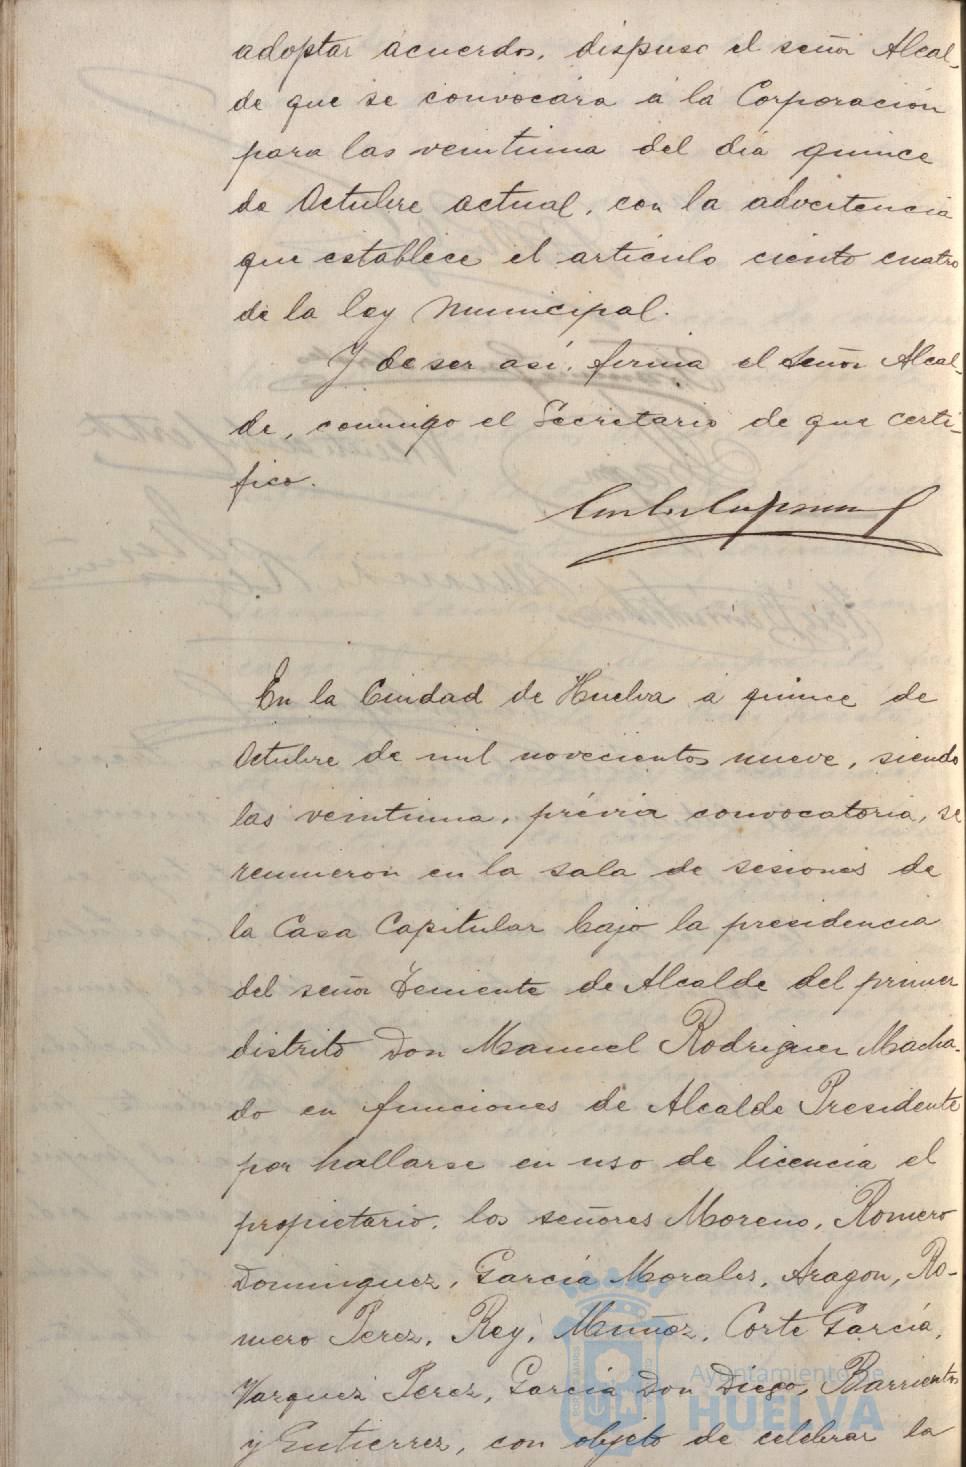 adoptar acuerdos, dispuso el señor Alcal-
de que se convocára á la Corporación
para las veintiuna del día quince
de Octubre actual, con la advertencia
que establece el artículo ciento cuatro
de la ley Municipal.
Y de ser así, firma el Señor Alcal-
de, conmigo el Secretario de que certi-
fico.
En la Ciudad de Huelva á quince de
Octubre de mil novecientos nueve, siendo
las veintiuna, prévia convocatoria, se
reunieron en la sala de sesiones de
la Casa Capitular bajo la presidencia
del señor Teniente de Alcalde del primer
distrito Don Manuel Rodriguez Macha-
do en funciones de Alcalde Presidente
por hallarse en uso de licencia el
propietario, los señores Moreno, Romero
Dominguez, García Morales, Aragon, Ro-
mero Perez, Rey, Muñoz, Corte García,
Vazquez Perez, García Don Diego, Barrientos
y Gutierrez, con objeto de celebrar la
Ayuntamiento de
HUELVA